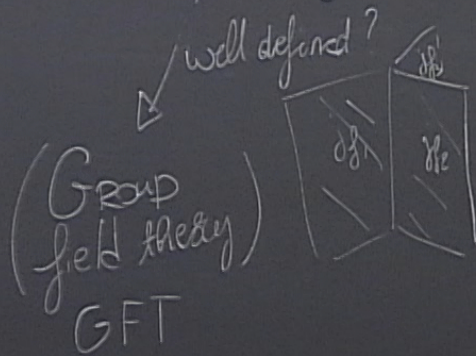 well defined?
(Group
field theory)
GFT